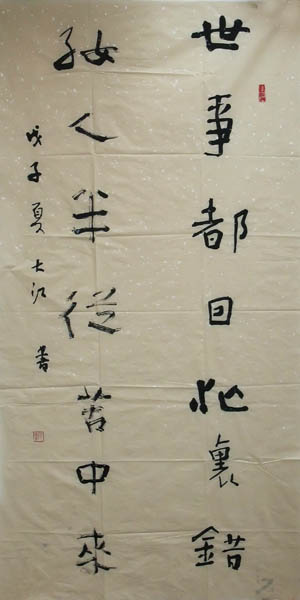 世事都因忙裏錯
好人半從苦中來
戊子夏大江書